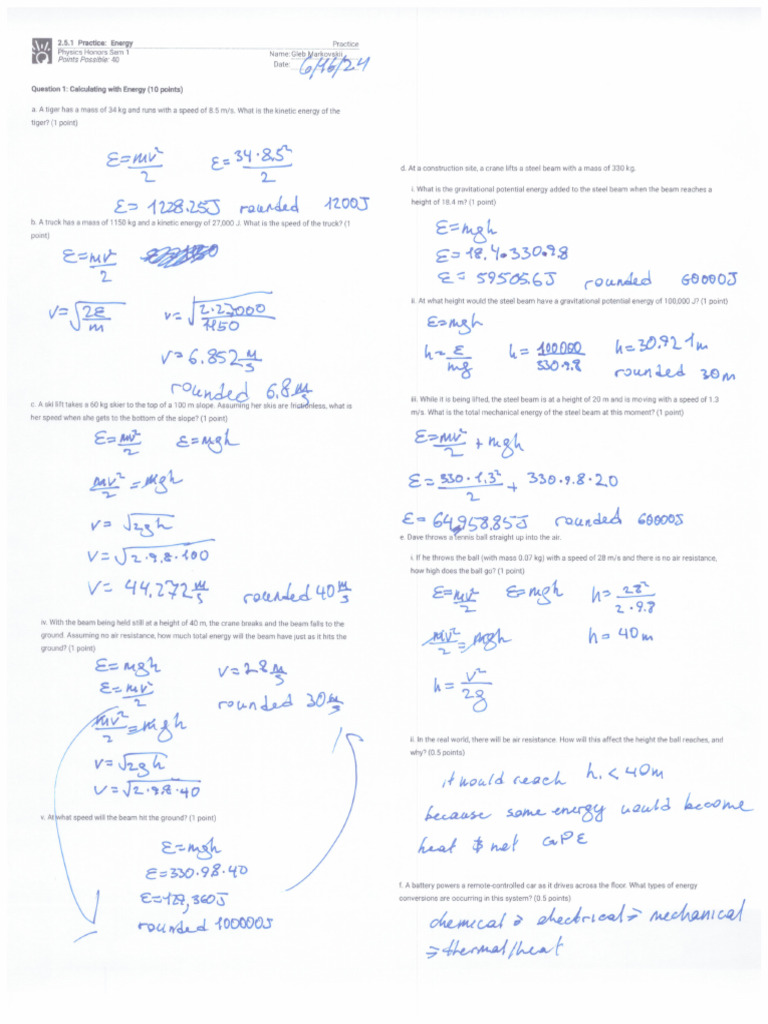 2.5.1 Practice: Energy
Practice
Physics Honors Sem 1
Name: Gleb Markovskii
Points Possible: 40
Date: 6/16/24
Question 1: Calculating with Energy (10 points)
a. A tiger has a mass of 34 kg and runs with a speed of 8.5 m/s. What is the kinetic energy of the
tiger? (1 point)
E=mv²/2 E=34·8.5²/2
E= 1228.25J rounded 1200J
b. A truck has a mass of 1150 kg and a kinetic energy of 27,000 J. What is the speed of the truck? (1
point)
E=mv²/2
v=√2E/m v=√2·27000/1150
v=6.852 m/s
rounded 6.8 m/s
c. A ski lift takes a 60 kg skier to the top of a 100 m slope. Assuming her skis are frictionless, what is
her speed when she gets to the bottom of the slope? (1 point)
E=mv²/2 E=mgh
mv²/2=mgh
v=√2gh
v=√2·9.8·100
v= 44.272 m/s rounded 40 m/s
iv. With the beam being held still at a height of 40 m, the crane breaks and the beam falls to the
ground. Assuming no air resistance, how much total energy will the beam have just as it hits the
ground? (1 point)
E=mgh v=28 m/s
E=mv²/2 rounded 30 m/s
mv²/2=mgh
v=√2gh
v=√2·9.8·40
v. At what speed will the beam hit the ground? (1 point)
E=mgh
E=330·9.8·40
E=129,360J
rounded 100000J
d. At a construction site, a crane lifts a steel beam with a mass of 330 kg.
i. What is the gravitational potential energy added to the steel beam when the beam reaches a
height of 18.4 m? (1 point)
E=mgh
E=18.4·330·9.8
E= 59505.6J rounded 60000J
ii. At what height would the steel beam have a gravitational potential energy of 100,000 J? (1 point)
E=mgh
h=E/mg h=100000/330·9.8 h=30.921m
rounded 30m
iii. While it is being lifted, the steel beam is at a height of 20 m and is moving with a speed of 1.3
m/s. What is the total mechanical energy of the steel beam at this moment? (1 point)
E=mv²/2 + mgh
E=330·1.3²/2 + 330·9.8·20
E= 64,958.85J rounded 60000J
e. Dave throws a tennis ball straight up into the air.
i. If he throws the ball (with mass 0.07 kg) with a speed of 28 m/s and there is no air resistance,
how high does the ball go? (1 point)
E=mv²/2 E=mgh h=28²/2·9.8
mv²/2=mgh h=40m
h=v²/2g
ii. In the real world, there will be air resistance. How will this affect the height the ball reaches, and
why? (0.5 points)
it would reach h<40m
because some energy would become
heat & not GPE
f. A battery powers a remote-controlled car as it drives across the floor. What types of energy
conversions are occurring in this system? (0.5 points)
chemical → electrical → mechanical
→ thermal/heat